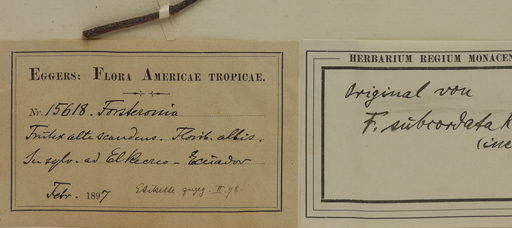 EGGERS: FLORA AMERICAE TROPICAE.
Nr. 15618. Forsteronia
Frutex alte scandens. Florib. albis.
In sylv. ad El Recreo - Ecuador
Febr. 1897
HERBARIUM REGIUM MONACEN
Original von
F. subcordata